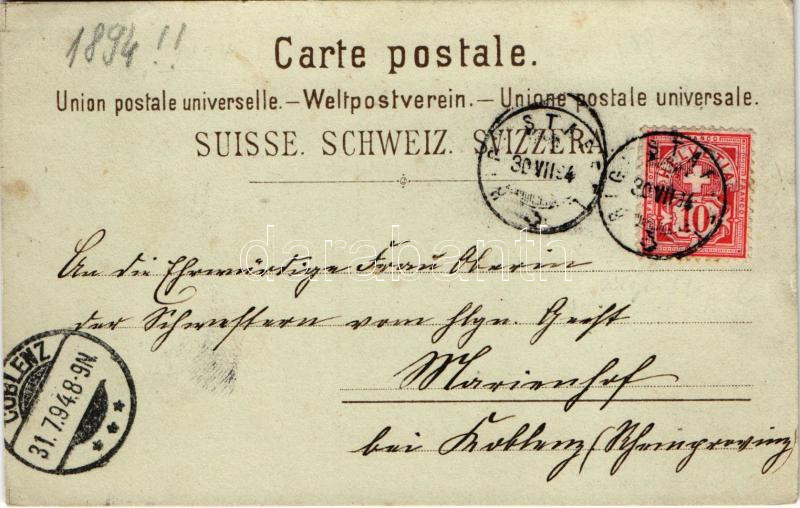 1894!!
Carte postale.
Union postale universelle.–Weltpostverein.–Unione postale universale.
SUISSE. SCHWEIZ. SVIZZERA.
RIGI STAFFEL
30 VII 94
RIGI STAFFEL
30 VII 94
HELVETIA
10
darabanth.com
An die Ehrwürdige Frau Oberin
der Schwestern vom hlgn. Geist
Marienhof
bei Koblenz (Rheinprovinz)
COBLENZ
31.7.94.8-9N.